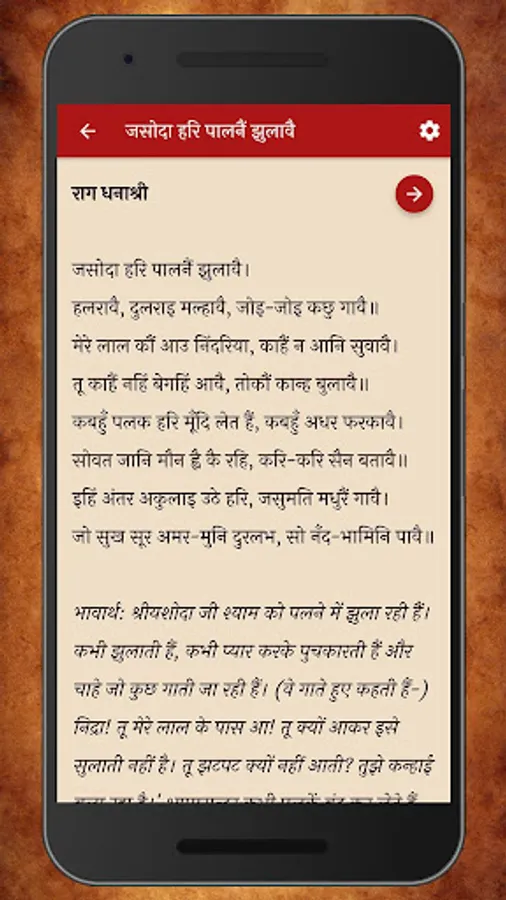 जसोदा हरि पालनैं झुलावै
राग धनाश्री
जसोदा हरि पालनैं झुलावै।
हलरावै, दुलराइ मल्हावै, जोइ-जोइ कछु गावै॥
मेरे लाल कौं आउ निंदरिया, काहैं न आनि सुवावै।
तू काहैं नहिं बेगहिं आवै, तोकौं कान्ह बुलावै॥
कबहुँ पलक हरि मूँदि लेत हैं, कबहुँ अधर फरकावै।
सोवत जानि मौन ह्वै कै रहि, करि-करि सैन बतावै॥
इहिं अंतर अकुलाइ उठे हरि, जसुमति मधुरैं गावै।
जो सुख सूर अमर-मुनि दुरलभ, सो नँद-भामिनि पावै॥
भावार्थ: श्रीयशोदा जी श्याम को पलने में झुला रही हैं।
कभी झुलाती हैं, कभी प्यार करके पुचकारती हैं और
चाहे जो कुछ गाती जा रही हैं। (वे गाते हुए कहती हैं-)
निद्रा! तू मेरे लाल के पास आ! तू क्यों आकर इसे
सुलाती नहीं है। तू झटपट क्यों नहीं आती? तुझे कन्हाई